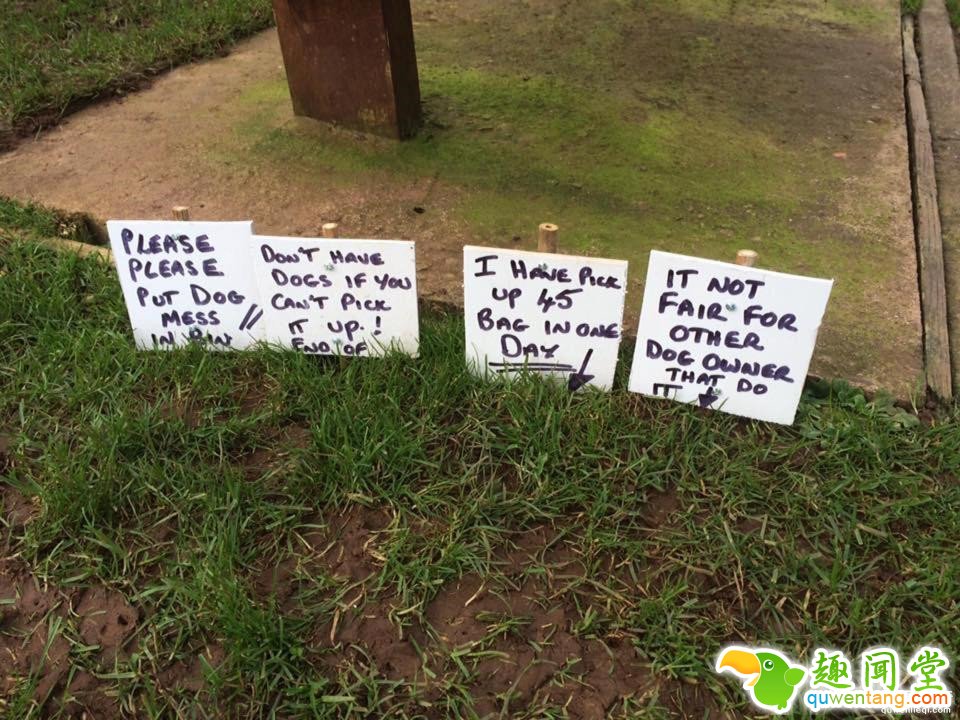 PLEASE
PLEASE
PUT DOG
MESS
IN BIN
DON'T HAVE
DOGS IF YOU
CAN'T PICK
IT UP.!
END OF
I HAVE PICK
UP 45
BAG IN ONE
DAY
IT NOT
FAIR FOR
OTHER
DOG OWNER
THAT DO
IT
趣闻堂
quwentang.com